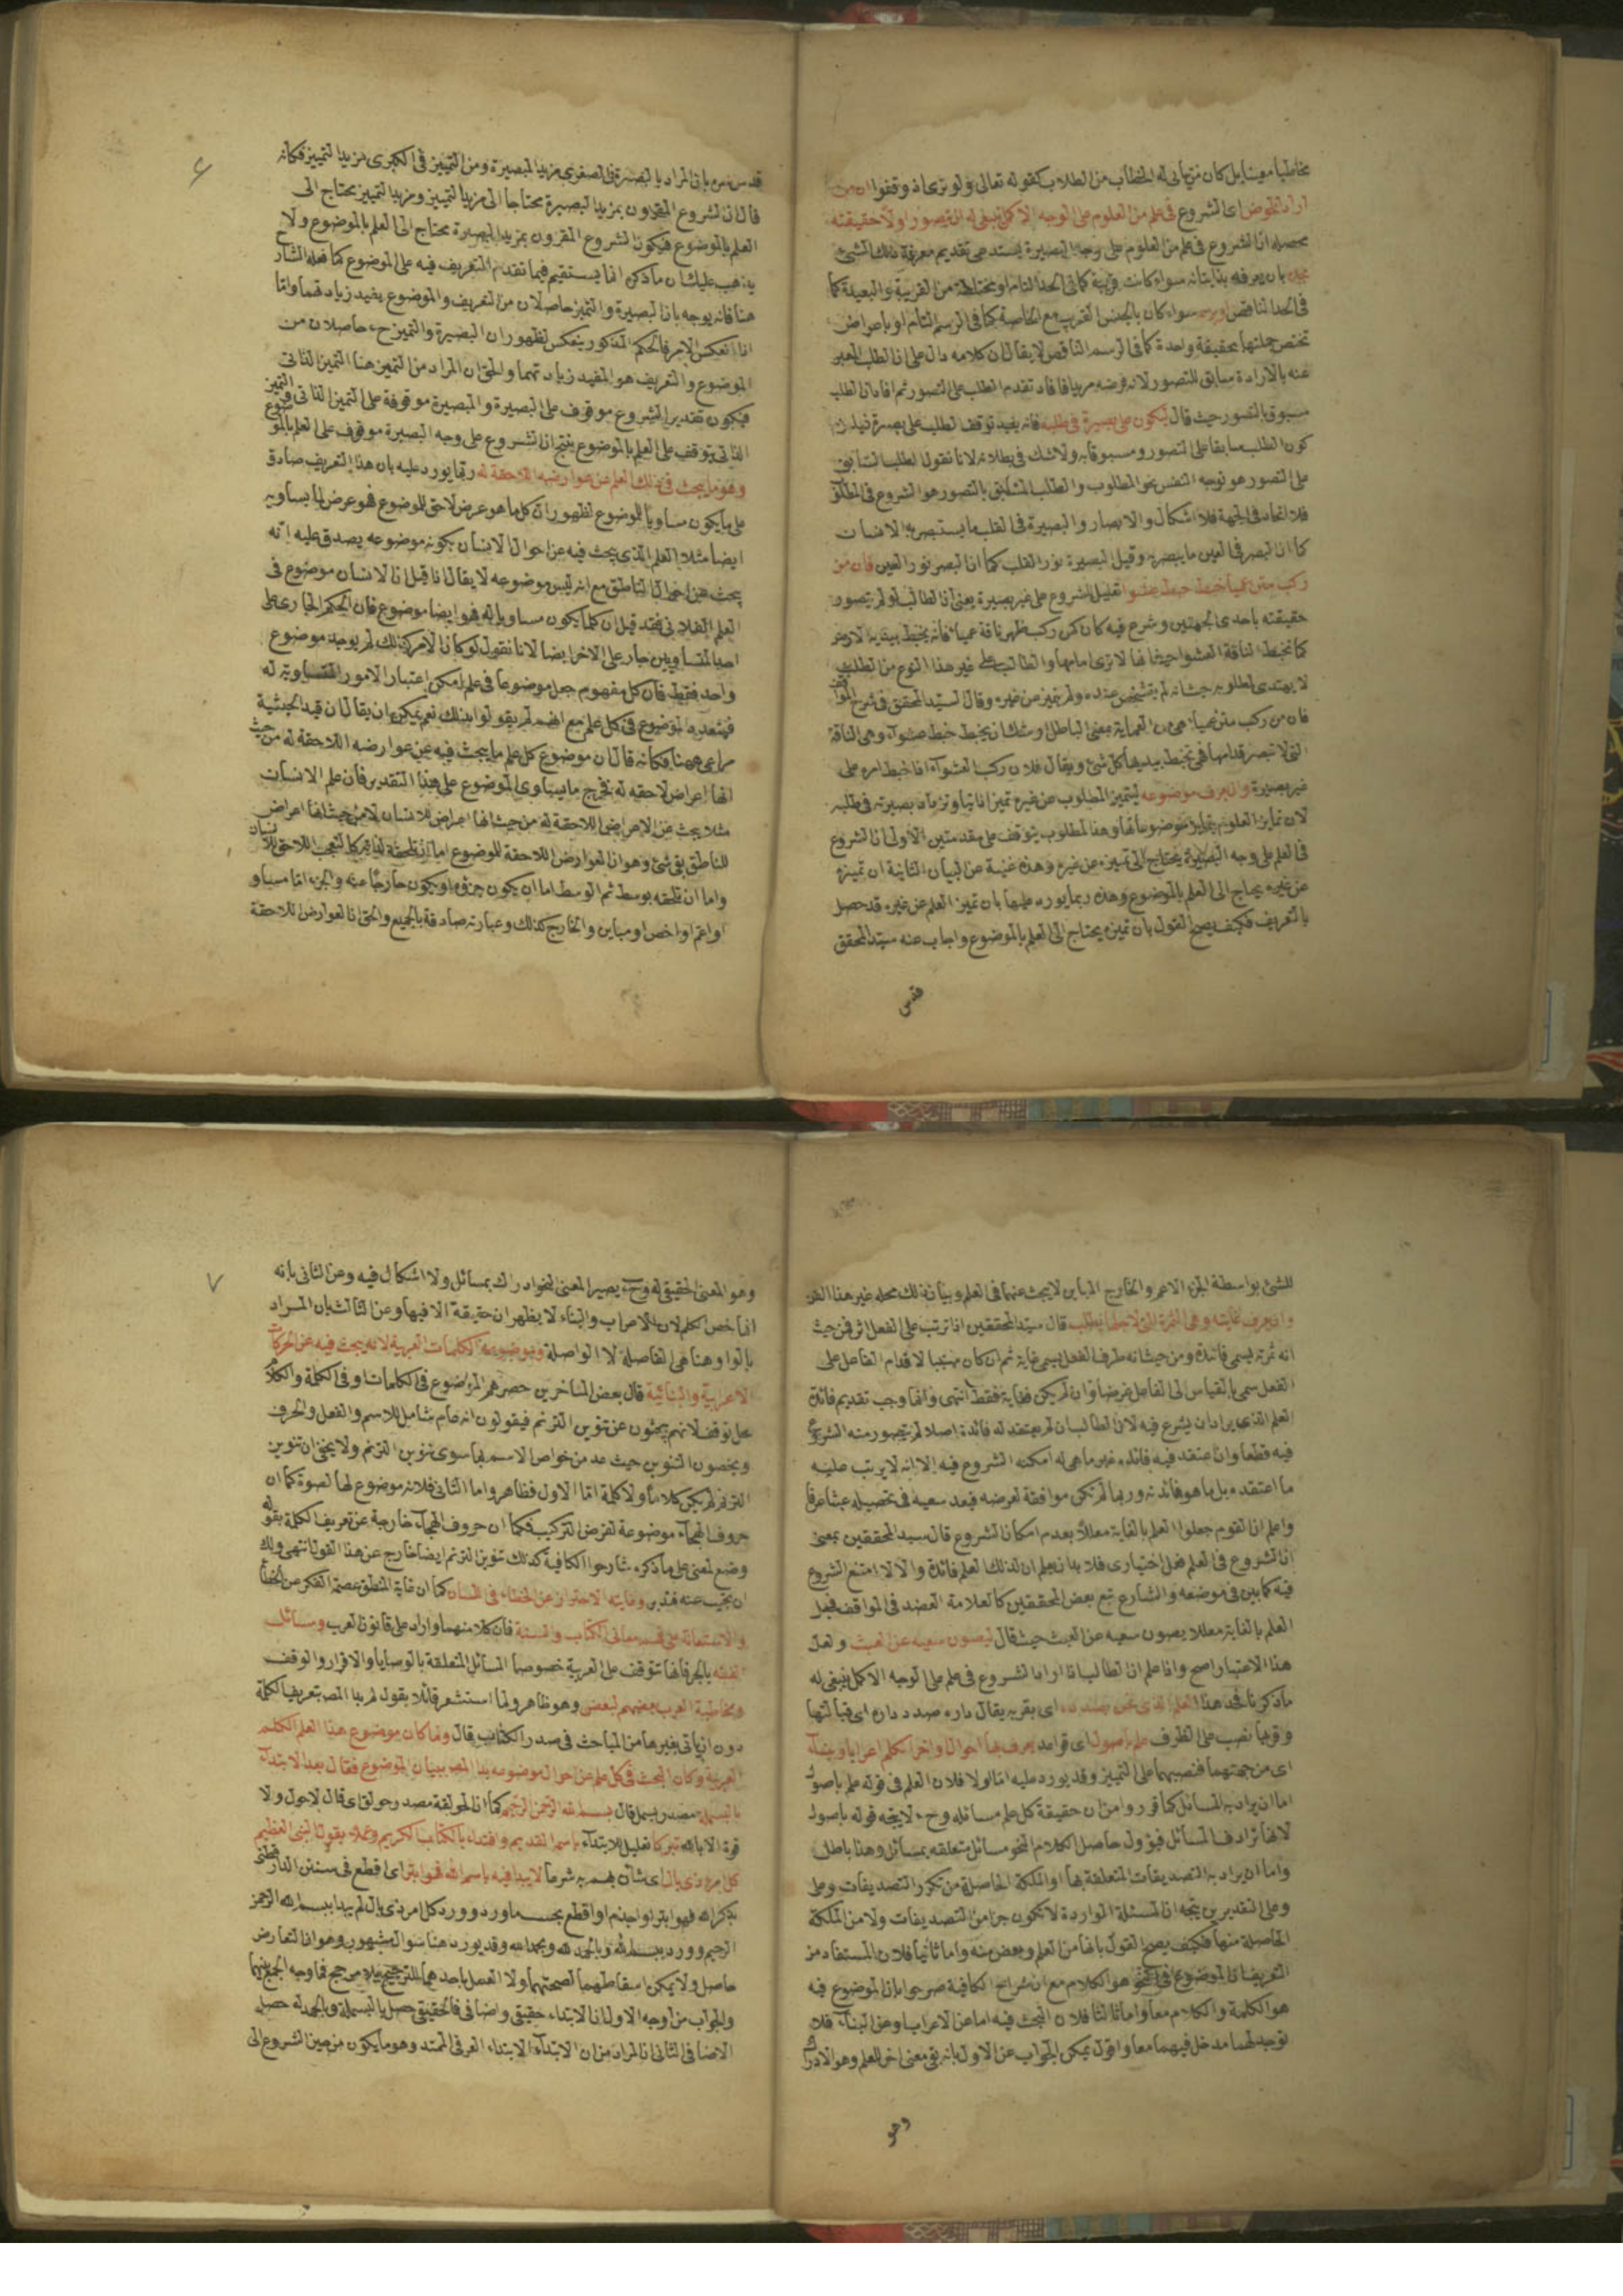 مخاطبا معينا بل كان من يأتى له الخطاب من الطلاب كقوله تعالى ولو ترى اذ وقفوا ان من
اراد الخوض اى الشروع فى علم من العلوم على الوجه الاكمل ينبغى له ان يتصور اولا حقيقته
محصله ان الشروع فى علم من العلوم على وجه البصيرة يستدعى تقديم معرفة ذلك الشئ
بحده بان يعرفه بذاتياته سواء كانت قريبة كما فى الحد التام او مختلطة من القريبة والبعيدة كما
فى الحد الناقص او برسمه سواء كان بالجنس القريب مع الخاصة كما فى الرسم التام او باعراض
تختص جملتها بحقيقة واحدة كما فى الرسم الناقص لا يقال ان كلامه دال على ان الطلب المعبر
عنه بالارادة سابق للتصور لانه فرضه مريدا فافاد تقدم الطلب على التصور ثم افاد ان الطلب
مسبوق بالتصور حيث قال ليكون على بصيرة فى طلبه فانه يفيد توقف الطلب على بصيرة فيلزم
كون الطلب سابقا على التصور ومسبوقا به ولا شك فى بطلانه لانا نقول الطلب السابق
على التصور هو توجه النفس نحو المطلوب والطلب المسبوق بالتصور هو الشروع فى المطلق
فلا اتحاد فى الجهة فلا اشكال والابصار والبصيرة فى القلب ما يستبصر به الانسان
كما ان البصر فى العين ما يبصر به وقيل البصيرة نور القلب كما ان البصر نور العين فان من
ركب متن عمياء خبط خبط عشوا تعليل للشروع على غير بصيرة يعنى ان الطالب لو لم يتصور
حقيقته باحدى الجهتين وشرع فيه كان كمن ركب ظهر ناقة عمياء فانه يخبط بيديه الارض
كما تخبط الناقة العشوا حيث انها لا ترى امامها والطالب على غير هذا النوع من الطلب
لا يهتدى لمطلوبه حيث انه لم يتشخص عنده ولم يتميز من غيره وقال السيد المحقق فى شرح المواقف
فان من ركب متن عمياء هى من العماية بمعنى الباطل اوشك ان يخبط خبط عشواء وهى الناقة
التى لا تبصر قدامها فهى تخبط بيديها كل شئ ويقال فلان ركب العشواء اذا خبط امره على
غير بصيرة وان يعرف موضوعه ليتميز المطلوب عن غيره تميزا ذاتيا وتزداد بصيرته فى طلبه
لان تمايز العلوم بتمايز موضوعاتها وهذا المطلوب يتوقف على مقدمتين الاولى ان الشروع
فى العلم على وجه البصيرة يحتاج الى تميزه عن غيره وهذه غنية عن البيان الثانية ان تميزه
عن غيره يحتاج الى العلم بالموضوع وهذه ربما يورد عليها بان تميز العلم عن غيره قد حصل
بالتعريف فكيف يصح القول بان تميزه يحتاج الى العلم بالموضوع واجاب عنه سيد المحقق
قدس
٦
قدس سره بان المراد بالبصيرة فى الصغرى مزيد البصيرة ومن التمييز فى الكبرى مزيد التمييز فكانه
قال ان الشروع المقرون بمزيد البصيرة محتاجا الى مزيد التمييز ومزيد التمييز يحتاج الى
العلم بالموضوع فيكون الشروع المقرون بمزيد البصيرة يحتاج الى العلم بالموضوع ولا
يذهب عليك ان ما ذكره انما يستقيم فيما تقدم التعريف فيه على الموضوع كما فعله الشارح
هنا فانه يوجه بان البصيرة والتميز حاصلان من التعريف والموضوع يفيد زيادتهما واما
اذا انعكس الامر فالحكم المذكور ينعكس لظهور ان البصيرة والتميز ح حاصلان من
الموضوع والتعريف هو المفيد زيادتهما والحق ان المراد من التميز هنا التميز الذاتى
فيكون تقدير الشروع موقوف على البصيرة والبصيرة موقوفة على التميز الذاتى والتميز
الذاتى يتوقف على العلم بالموضوع ينتج ان الشروع على وجه البصيرة موقوف على العلم بالموضوع
وهو ما يبحث فى ذلك العلم عن عوارضه اللاحقة له ربما يورد عليه بان هذا التعريف صادق
على ما يكون مساويا للموضوع لظهور ان كل ما هو عرض لاحق للموضوع فهو عرض لما يساويه
ايضا مثلا العلم الذى يبحث فيه عن احوال الانسان بكونه موضوعه يصدق عليه انه
يبحث عن احوال الناطق مع انه ليس موضوعه لا يقال انا قبل ان الانسان موضوع فى
العلم الفلانى فقد قيل ان كلما يكون مساويا له فهو ايضا موضوع فان الحكم الجارى على
احد المتساويين جار على الاخر ايضا لانا نقول لو كان الامر كذلك لم يوجد موضوع
واحد فقط فان كل مفهوم جعل موضوعا فى علم امكن اعتبار الامور المتساوية له
فيتعدد الموضوع فى كل علم مع انهم لم يقولوا بذلك نعم يمكن ان يقال ان قيد الحيثية
مراعى ههنا فكانه قال ان موضوع كل علم ما يبحث فيه عن عوارضه اللاحقة له من حيث
انها اعراض لاحقه له فخرج ما يساوى الموضوع على هذا التقدير فان علم الانسان
مثلا يبحث عن الاعراض اللاحقة له من حيث انها اعراض للانسان لا من حيث انها اعراض
للناطق بقى شئ وهو ان العوارض اللاحقة للموضوع اما ان تلحقه لذاته كالتعجب اللاحق للانسان
واما ان تلحقه بوسط ثم الوسط اما ان يكون جزؤه او يكون خارجا عنه والجزء اما مساو
او اعم او اخص او مباين والخارج كذلك وعبارته صادقة بالجميع والحق ان العوارض اللاحقة
للشئ بواسطة الجزء الاعم والخارج المباين لا يبحث عنهما فى العلم وبيان ذلك محله غير هذا الفن
وان يعرف غايته وهى الثمرة التى لاجلها يطلب قال سيد المحققين اذا ترتب على الفعل اثر فمن حيث
انه ثمرته يسمى فائدة ومن حيث انه طرف الفعل يسمى غاية ثم ان كان سببا لاقدام الفاعل على
الفعل سمى بالقياس الى الفاعل غرضا وان لم يكن فغاية فقط انتهى وانما وجب تقديم فائدة
العلم الذى يراد ان يشرع فيه لان الطالب ان لم يعتقد له فائدة اصلا لم يتصور منه الشروع
فيه قطعا وان اعتقد فيه فائدة غير ما هى له امكنه الشروع فيه الا انه لا يرتب عليه
ما اعتقده بل ما هو فائدته وربما لم تكن موافقة لغرضه فيعد سعيه فى تحصيله عبثا عرفا
واعلم ان القوم جعلوا العلم بالغاية معللا بعدم امكان الشروع قال سيد المحققين بمعنى
ان الشروع فى العلم فعل اختيارى فلا بد ان يعلم ان لذلك العلم فائدة والا لامتنع الشروع
فيه كما بين فى موضعه والشارح تبع بعض المحققين كالعلامة العضد فى المواقف فجعل
العلم بالغاية معللا يصون سعيه عن العبث حيث قال ليصون سعيه عن العبث ولعل
هذا الاعتبار اصح واذا علم ان الطالب اذا اراد الشروع فى علم على الوجه الاكمل ينبغى له
ما ذكرنا فحد هذا العلم الذى نحن بصدده اى بقربه يقال داره صدد داره اى قبالتها
وقربها نصب على الظرف علم باصول اى قواعد يعرف بها احوال اواخر الكلم اعرابا وبناء
اى من جهتهما فنصبهما على التمييز وقد يورد عليه اما اولا فلان العلم فى قوله علم باصول
اما ان يراد به المسائل كما قرروا من ان حقيقة كل علم مسائله وح لا يتجه قوله باصول
لانها ترادف المسائل فيؤول حاصل الكلام النحو مسائل متعلقه بمسائل وهذا باطل
واما ان يراد به التصديقات المتعلقة بها او الملكة الحاصلة من تكرر التصديقات وعلى
وعلى التقديرين يتجه ان المسئلة الواردة لا تكون جزا من التصديقات ولا من الملكة
الحاصلة منها فكيف يصح القول بانها من العلم وبعض منه واما ثانيا فلان المستفاد من
التعريف ان الموضوع فى النحو هو الكلام مع ان شراح الكافية صرحوا بان الموضوع فيه
هو الكلمة والكلام معا واما ثالثا فلان البحث فيه اما عن الاعراب او عن البناء فلا
توجد لهما مدخل فيهما معا واقول يمكن الجواب عن الاول بانه بقى معنى اخر للعلم وهو الادراك
وهو
٧
وهو المعنى الحقيقى له وح يصير المعنى النحو ادراك بمسائل ولا اشكال فيه وعن الثانى بانه
انما خص الكلم لان الاعراب والبناء لا يظهران حقيقة الا فيها وعن الثالث بان المراد
بالواو هنا هى الفاصلة لا الواصلة وموضوعه الكلمات العربية لانه يبحث فيه عن الحركات
الاعرابية والبنائية قال بعض المتاخرين حصرهم الموضوع فى الكلمات او فى الكلمة والكلام
محل توقف لانهم يبحثون عن تنوين الترنم فيقولون انه عام شامل للاسم والفعل والحرف
ويخصون التنوين حيث عد من خواص الاسم بما سوى تنوين الترنم ولا يخفى ان تنوين
الترنم لم يكن كلاما ولا كلمة اما الاول فظاهر واما الثانى فلانه موضوع لها لصوة كما ان
حروف الهجاء موضوعة لغرض التركيب فكما ان حروف الهجاء خارجة عن تعريف الكلمة بقوله
وضع لمعنى على ما ذكره شارحوا الكافية كذلك تنوين الترنم ايضا خارج عن هذا القول انتهى ولك
ان تجيب عنه فتدبر وغايته الاحتراز عن الخطاء فى اللسان كما ان غاية المنطق عصمة الفكر من الخطأ
والاستعانة على فهم معانى الكتاب والسنة فان كلا منهما وارد على قانون العرب ومسائل
الفقه بالجر فانها تتوقف على العربية خصوصا المسائل المتعلقة بالوصايا والاقرار والوقف
ومخاطبة العرب بعضهم لبعض وهو ظاهر ولما استشعر قائلا يقول لم بدا المص بتعريف الكلمة
دون ان ياتى بغيرها من المباحث فى صدر الكتاب قال ولما كان موضوع هذا العلم الكلم
العربية وكان البحث فى كل علم عن احوال موضوعه بدا المص ببيان الموضوع فقال بعد الابتداء
بالبسملة مصدر بسمل قال بسم الله الرحمن الرحيم كما ان الحولقة مصدر حولق اى قال لا حول ولا
قوة الا بالله تبركا تعليل للابتداء باسم القديم واقتداء بالكتاب الكريم وعملا بقول النبى العظيم
كل امر ذى بال اى شأن يهتم به شرعا لا يبدا فيه باسم الله فهو ابتر اى اقطع فى سنن الدارقطنى
بذكر الله فهو ابتر او اجذم او اقطع بحسب ما ورد وورد كل امر ذى بال لم يبدا ببسم الله الرحمن
الرحيم وورد ببسم الله وبالحمد لله وبحمد الله وقد يورد هنا سؤال مشهور وهو ان التعارض
حاصل ولا يمكن اسقاطهما لصحتهما ولا العمل باحدهما للترجيح بلا مرجح فما وجه الجمع بينهما
والجواب من اوجه الاول ان الابتداء حقيقى واضافى فالحقيقى حصل بالبسملة وبالحمدله حصل
الاضافى الثانى ان المراد من ان الابتداء الابتداء العرفى الممتد وهو ما يكون من حين الشروع الى